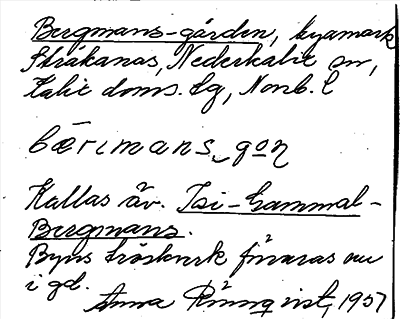 Bergmans-gården, byamark
Strákanas, Nederkalix sn,
Kalix doms. lg, Norrb. l
bærɩmans gon
Kallas äv. Isi-Gammal-
Bergmans.
Byns tröskverk förvaras nu
i gd. Anna Rönnqvist, 1957